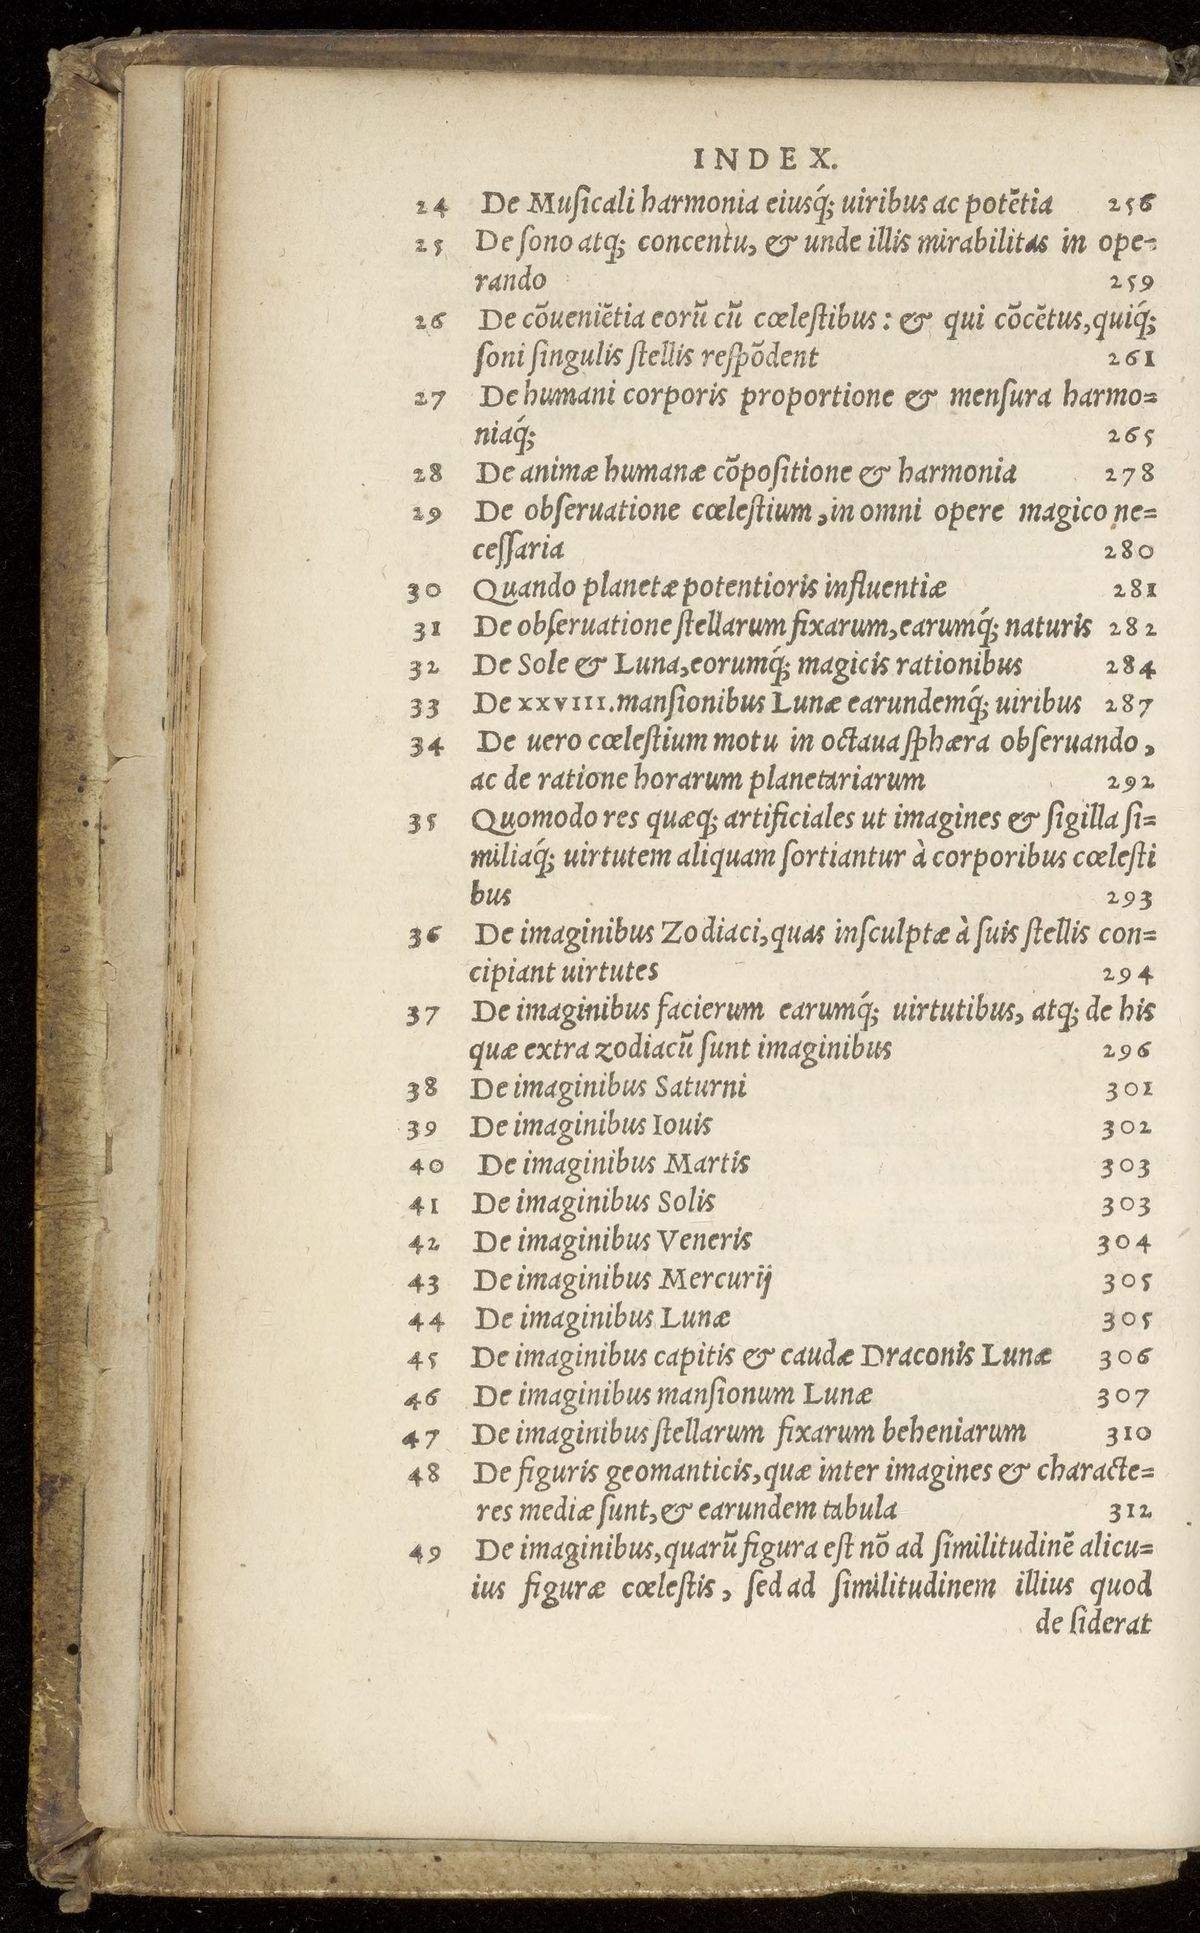 INDEX.
24 De Muſicali harmonia eiusq́; uiribus ac potẽtia 256
25 De ſono atq; concentu, & unde illis mirabilitas in ope-
rando 259
26 De cõueniẽtia eorũ cũ cœleſtibus: & qui cõcẽtus, quiq́;
ſoni ſingulis ſtellis reſpõdent 261
27 De humani corporis proportione & menſura harmo=
niaq́; 265
28 De animæ humanæ cõpoſitione & harmonia 278
29 De obſeruatione cœleſtium, in omni opere magico ne=
ceſſaria 280
30 Quando planetæ potentioris influentiæ 281
31 De obſeruatione ſtellarum fixarum, earumq́; naturis 282
32 De Sole & Luna, eorumq́; magicis rationibus 284
33 De XXVIII. manſionibus Lunæ earundemq́; uiribus 287
34 De uero cœleſtium motu in octaua ſphæra obſeruando,
ac de ratione horarum planetariarum 292
35 Quomodo res quæq; artificiales ut imagines & ſigilla ſi=
miliaq́; uirtutem aliquam ſortiantur à corporibus cœleſti
bus 293
36 De imaginibus Zodiaci, quas inſculptæ à ſuis ſtellis con=
cipiant uirtutes 294
37 De imaginibus facierum earumq́; uirtutibus, atq; de his
quæ extra zodiacũ ſunt imaginibus 296
38 De imaginibus Saturni 301
39 De imaginibus Iouis 302
40 De imaginibus Martis 303
41 De imaginibus Solis 303
42 De imaginibus Veneris 304
43 De imaginibus Mercurij 305
44 De imaginibus Lunæ 305
45 De imaginibus capitis & caudæ Draconis Lunæ 306
46 De imaginibus manſionum Lunæ 307
47 De imaginibus ſtellarum fixarum beheniarum 310
48 De figuris geomanticis, quæ inter imagines & characte=
res mediæ ſunt, & earundem tabula 312
49 De imaginibus, quarũ figura eſt nõ ad ſimilitudinẽ alicu=
ius figuræ cœleſtis, ſed ad ſimilitudinem illius quod
de ſiderat